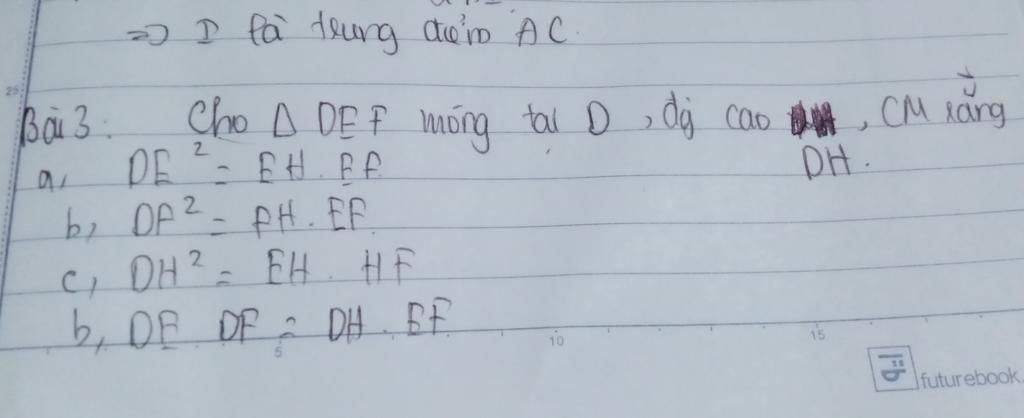 => I là trung điểm AC.
25
Bài 3: Cho Δ DEF vuông tại D, đg cao DH, CM rằng
DH.
a, DE² = EH. EF
b, DF² = FH. EF
c, DH² = EH. HF
b, DE DF = DH. EF
5 10 15
futurebook